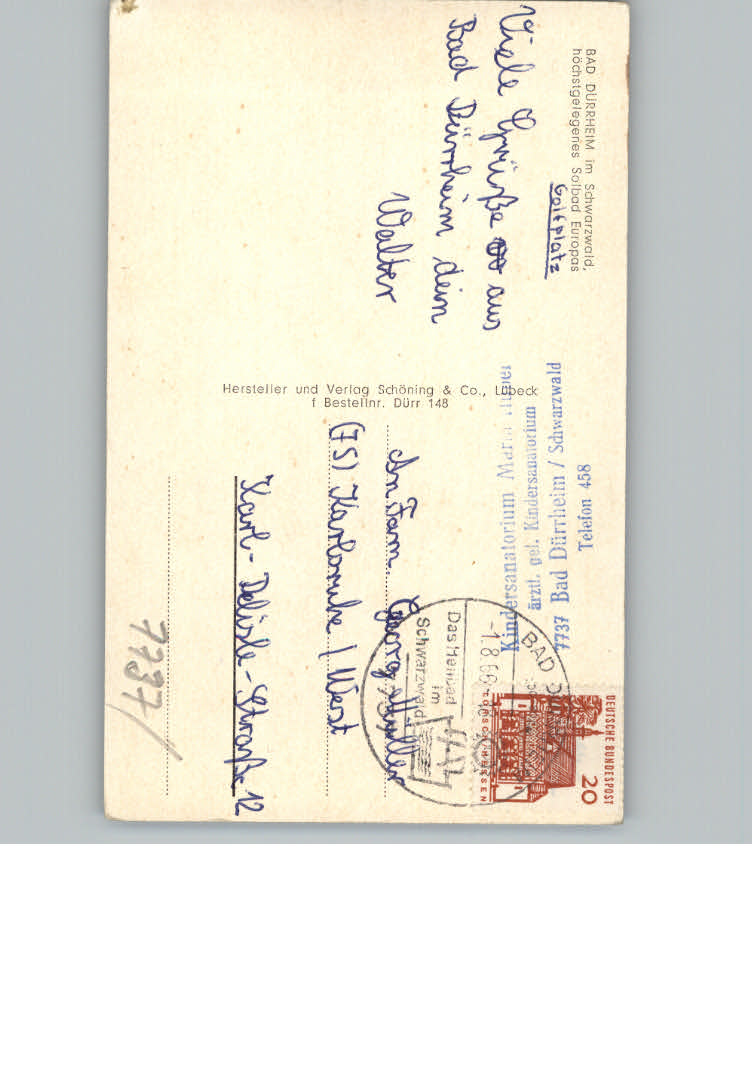 BAD DÜRRHEIM im Schwarzwald,
höchstgelegenes Solbad Europas
Golfplatz
Viele Grüße aus
Bad Dürrheim dein
Walter
Hersteller und Verlag Schöning & Co., Lübeck
f Bestellnr. Dürr 148
Kindersanatorium Maria
ärztl. gel. Kindersanatorium
7737 Bad Dürrheim / Schwarzwald
Telefon 458
DEUTSCHE BUNDESPOST
20
LORSCH/HESSEN
BAD
-1.8.66
Das Heilbad
im
Schwarzwald
An Fam. Georg Müller
(75) Karlsruhe / West
Karl-Delisle-Straße 12
7737/